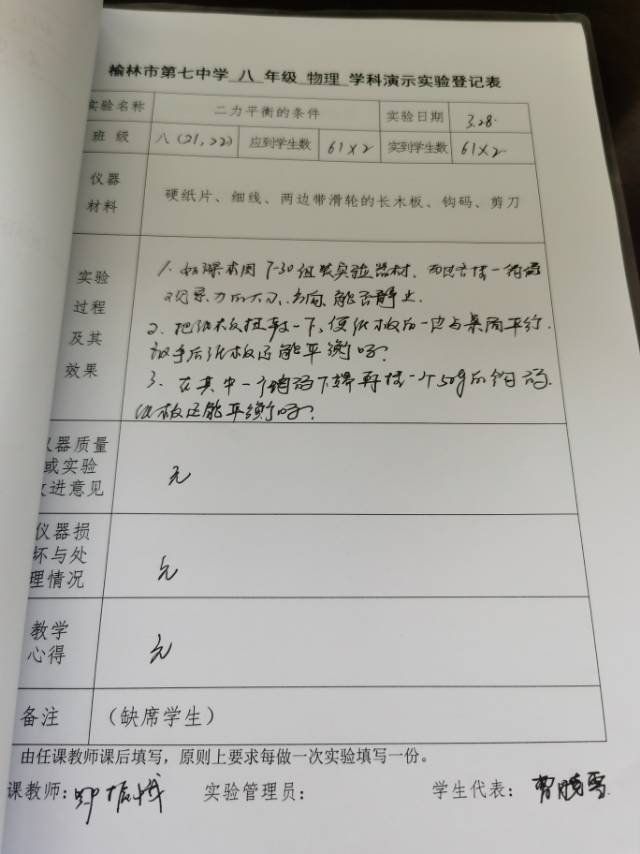 榆林市第七中学 八 年级 物理 学科演示实验登记表
实验名称 二力平衡的条件 实验日期 3.28.
班 级 八(21,22) 应到学生数 61×2 实到学生数 61×2
仪器
材料
硬纸片、细线、两边带滑轮的长木板、钩码、剪刀
实验
过程
及其
效果
1. 如课本图7-30组装实验器材.
观察力的大小、方向,能否静止.
2. 把纸板扭转一下,使纸板的一边与桌面平行.
放手后纸板还能平衡吗?
3. 在其中一个钩码下端再挂一个50g的钩码.
纸板还能平衡吗?
仪器质量
或实验
改进意见
无
仪器损
坏与处
理情况
无
教学
心得
无
备注 (缺席学生)
由任课教师课后填写,原则上要求每做一次实验填写一份。
课教师: 实验管理员: 学生代表: